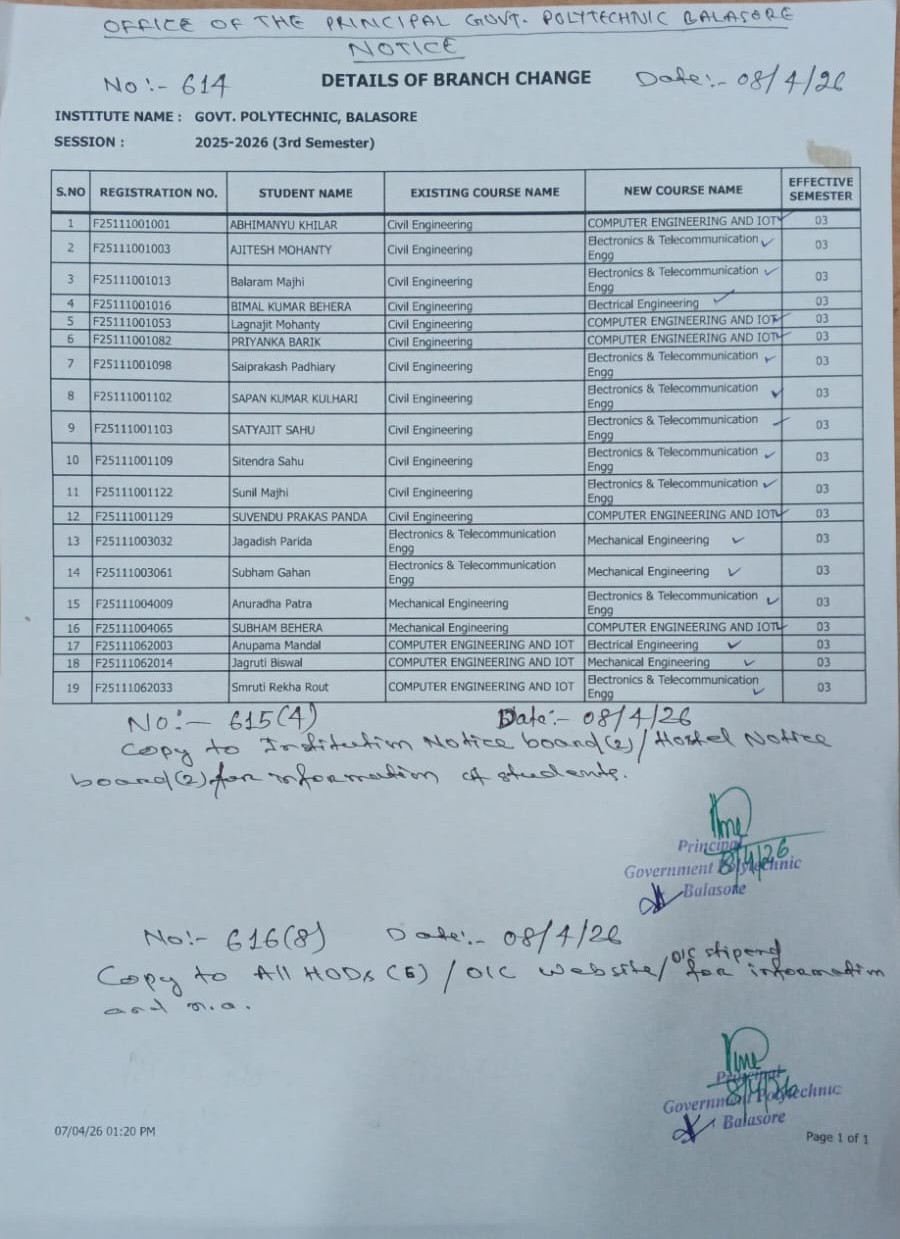 OFFICE OF THE PRINCIPAL GOVT. POLYTECHNIC BALASORE
NOTICE
No:- 614 DETAILS OF BRANCH CHANGE Date:- 08/4/26
INSTITUTE NAME : GOVT. POLYTECHNIC, BALASORE
SESSION : 2025-2026 (3rd Semester)
S.NO REGISTRATION NO. STUDENT NAME EXISTING COURSE NAME NEW COURSE NAME EFFECTIVE SEMESTER
1 F25111001001 ABHIMANYU KHILAR Civil Engineering COMPUTER ENGINEERING AND IOT 03
2 F25111001003 AJITESH MOHANTY Civil Engineering Electronics & Telecommunication Engg 03
3 F25111001013 Balaram Majhi Civil Engineering Electronics & Telecommunication Engg 03
4 F25111001016 BIMAL KUMAR BEHERA Civil Engineering Electrical Engineering 03
5 F25111001053 Lagnajit Mohanty Civil Engineering COMPUTER ENGINEERING AND IOT 03
6 F25111001082 PRIYANKA BARIK Civil Engineering COMPUTER ENGINEERING AND IOT 03
7 F25111001098 Saiprakash Padhiary Civil Engineering Electronics & Telecommunication Engg 03
8 F25111001102 SAPAN KUMAR KULHARI Civil Engineering Electronics & Telecommunication Engg 03
9 F25111001103 SATYAJIT SAHU Civil Engineering Electronics & Telecommunication Engg 03
10 F25111001109 Sitendra Sahu Civil Engineering Electronics & Telecommunication Engg 03
11 F25111001122 Sunil Majhi Civil Engineering Electronics & Telecommunication Engg 03
12 F25111001129 SUVENDU PRAKAS PANDA Civil Engineering COMPUTER ENGINEERING AND IOT 03
13 F25111003032 Jagadish Parida Electronics & Telecommunication Engg Mechanical Engineering 03
14 F25111003061 Subham Gahan Electronics & Telecommunication Engg Mechanical Engineering 03
15 F25111004009 Anuradha Patra Mechanical Engineering Electronics & Telecommunication Engg 03
16 F25111004065 SUBHAM BEHERA Mechanical Engineering COMPUTER ENGINEERING AND IOT 03
17 F25111062003 Anupama Mandal COMPUTER ENGINEERING AND IOT Electrical Engineering 03
18 F25111062014 Jagruti Biswal COMPUTER ENGINEERING AND IOT Mechanical Engineering 03
19 F25111062033 Smruti Rekha Rout COMPUTER ENGINEERING AND IOT Electronics & Telecommunication Engg 03
No:- 615(4) Date:- 08/4/26
Copy to Institution Notice board(2)/Hostel Notice
board(2) for information of students.
Principal
8/4/26
Government Polytechnic
Balasore
No:- 616(8) Date:- 08/4/26
Copy to All HODs (5) / OIC website/ OIC stipend for information
and n.a.
Principal
8/4/26
Government Polytechnic
Balasore
07/04/26 01:20 PM
Page 1 of 1